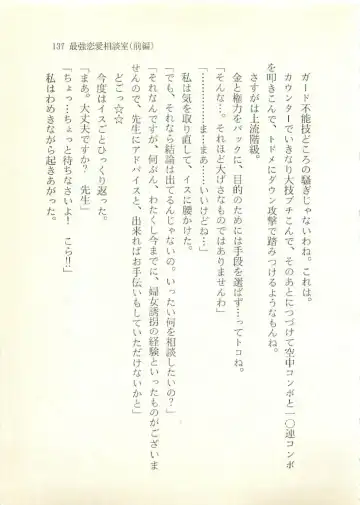 137 最強恋愛相談室(前編)
ガード不能技どころの騒ぎじゃないわね。これは。
カウンターでいきなり大技ブチこんで、そのあとにつづけて空中コンボと一〇連コンボ
を叩きこんで、トドメにダウン攻撃で踏みつけるようなもんね。
さすがは上流階級。
金と権力をバックに、目的のためには手段を選ばず…ってトコね。
「そんな…。それほど大げさなものではありませんわ」
「……………ま…まあ……いいけどね…」
私は気を取り直して、イスに腰かけた。
「でも、それなら結論は出てるんじゃないの。いったい何を相談したいの?」
「それなんですが、何ぶん、わたくし今までに、婦女誘拐の経験といったものがございま
せんので、先生にアドバイスと、出来ればお手伝いもしていただけないかと」
どごっ☆☆
今度はイスごとひっくり返った。
「まあ。大丈夫ですか? 先生」
「ちょっ…ちょっと待ちなさいよ! こら!!」
私はわめきながら起きあがった。